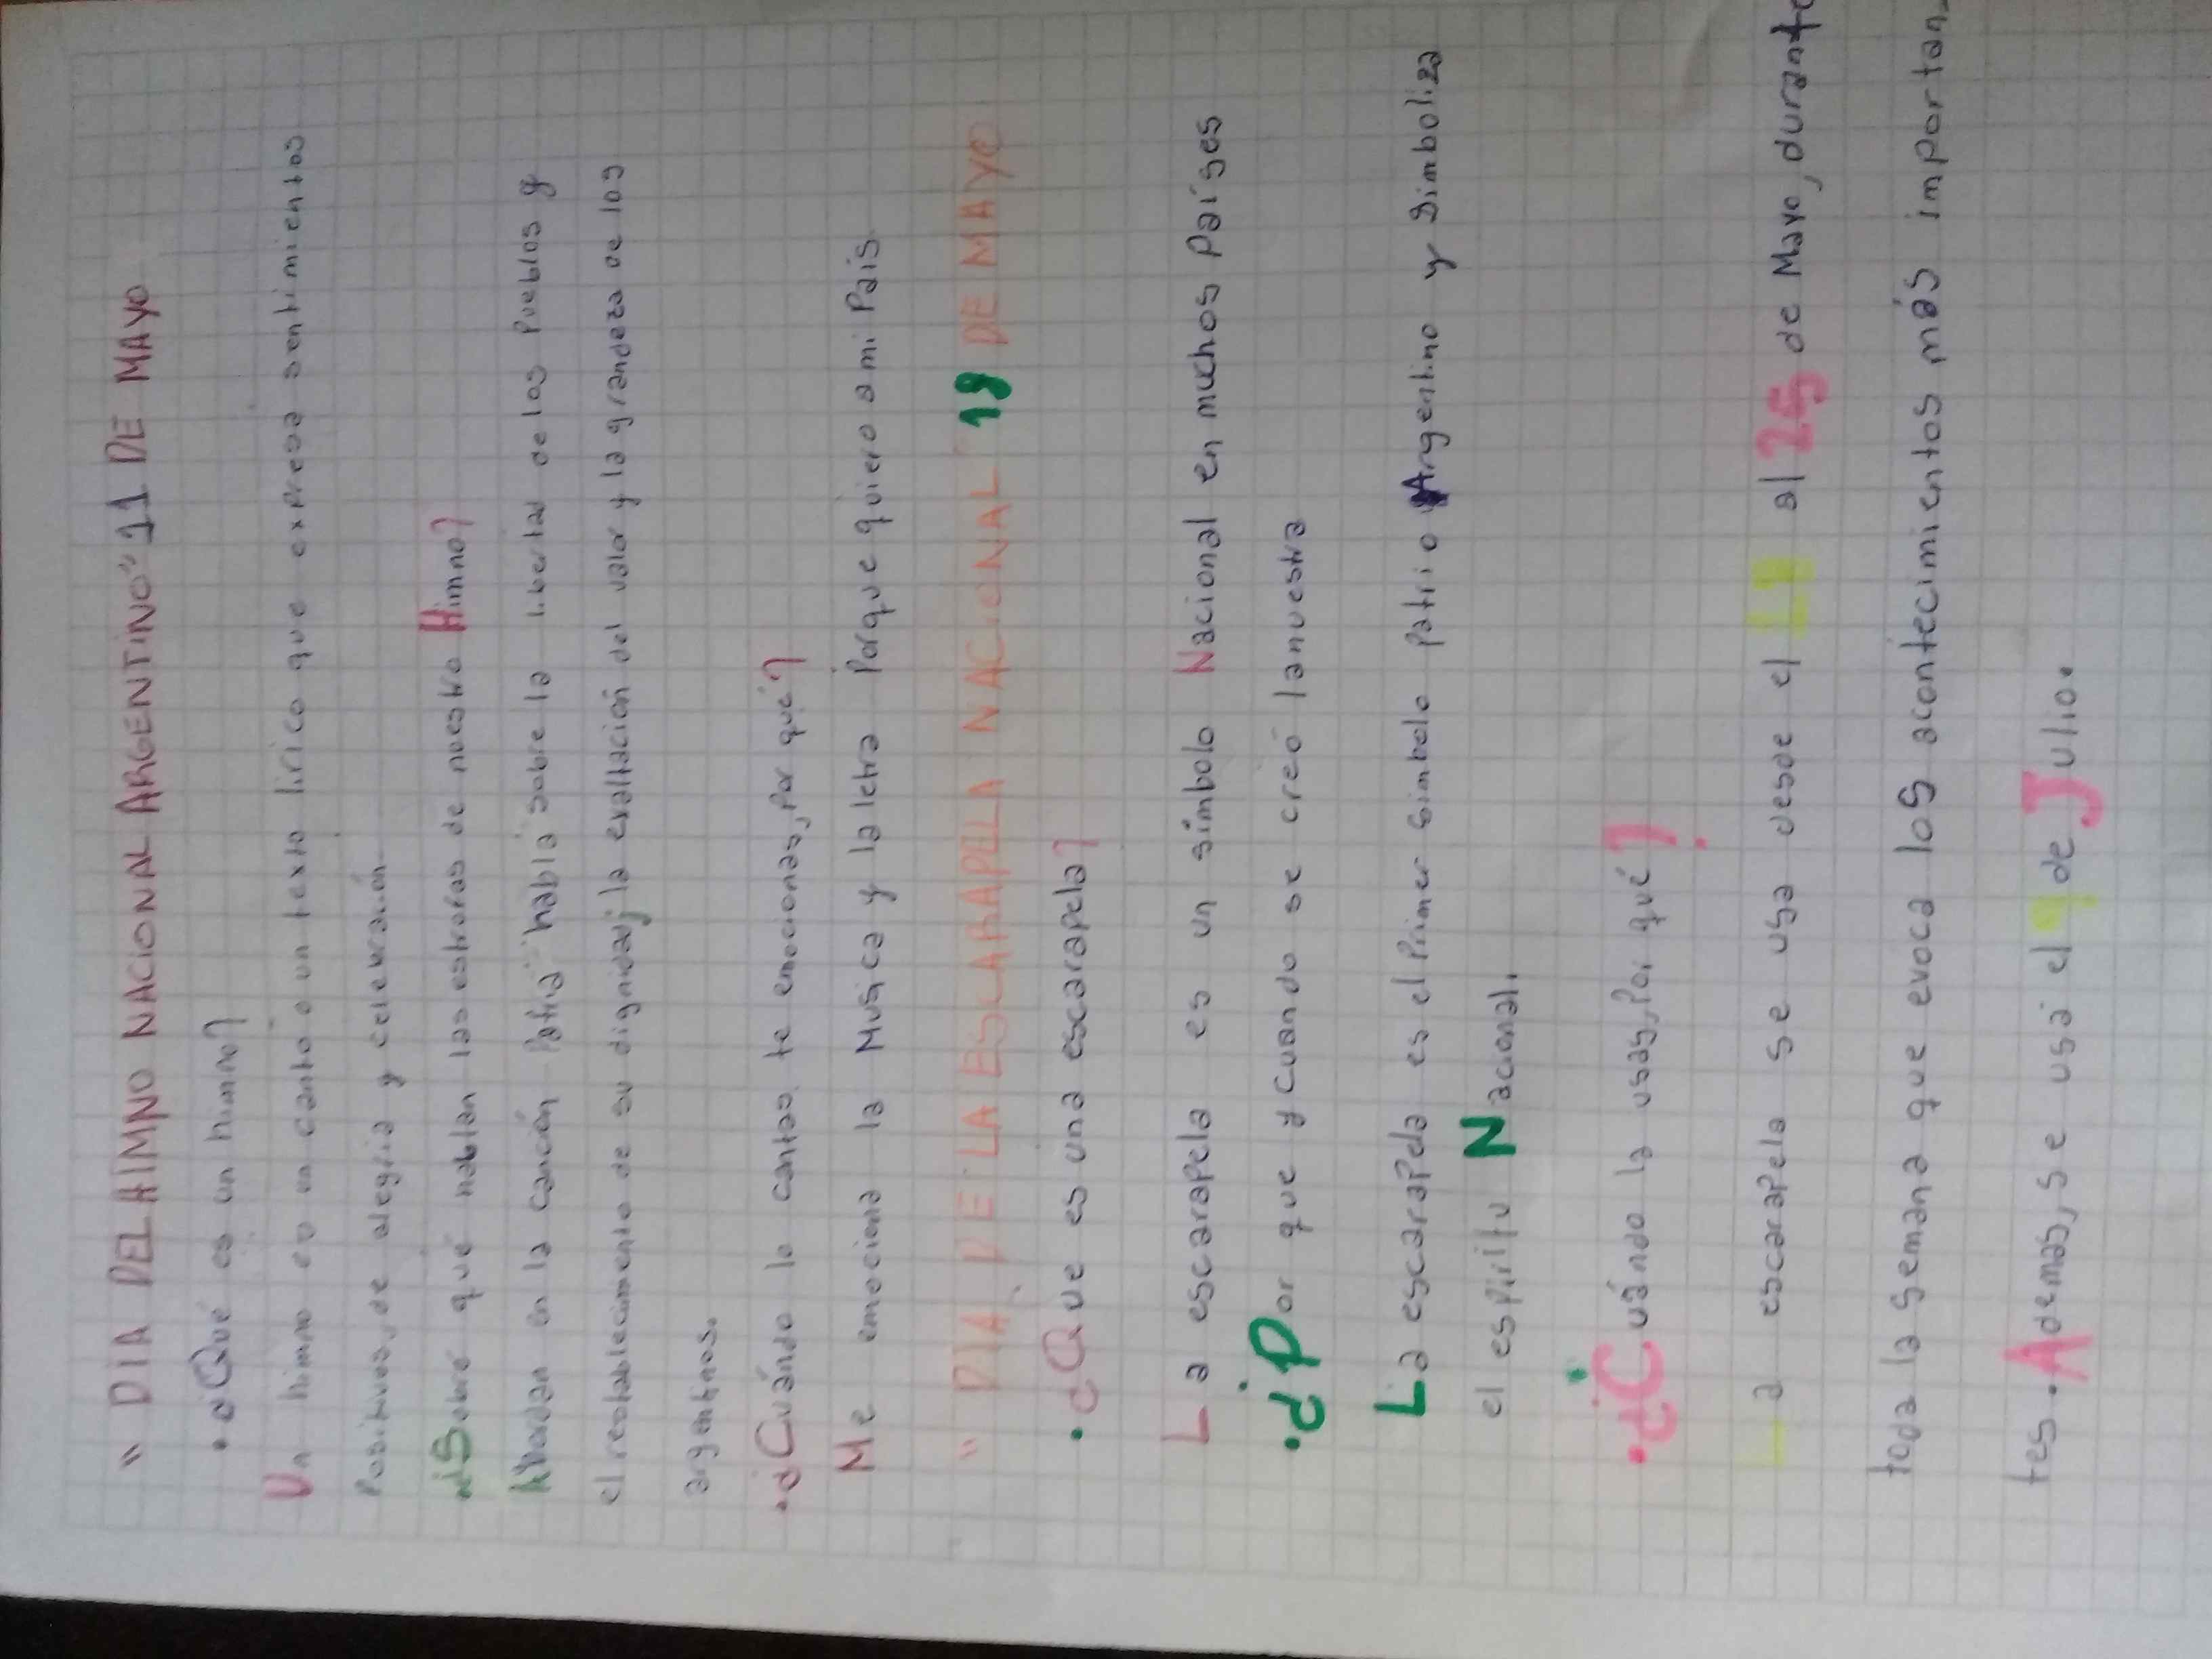 " DIA DEL HIMNO NACIONAL ARGENTINO" 11 DE MAYO
• ¿Qué es un himno?
Un himno es un canto o un texto lirico que expresa sentimientos
Positivos, de alegria y celebración
¿Sobre qué hablan las estrofas de nuestro Himno?
en la canción Patria habla sobre la libertad de los Pueblos y
el restablecimiento de su dignidad; la exaltación del valor y la grandeza de los
argentinos.
• ¿Cuándo lo cantas, te emocionas, Por qué?
Me emociona la Musica y la letra Porque quiero a mi Pais
" DIA DE LA ESCARAPELA NACIONAL" 18 DE MAYO
• ¿Que es una escarapela?
La escarapela es un símbolo Nacional en muchos Países
• ¿Por que y cuando se creó la nuestra
La escarapela es el Primer Simbolo Patrio Argentino y Simboliza
el espiritu Nacional.
• ¿Cuándo la usas, Por qué?
La escarapela se usa desde el 18 al 25 de Mayo, durante
toda la semana que evoca los acontecimientos más importan_
tes. Ademas, se usa el 9 de Julio.